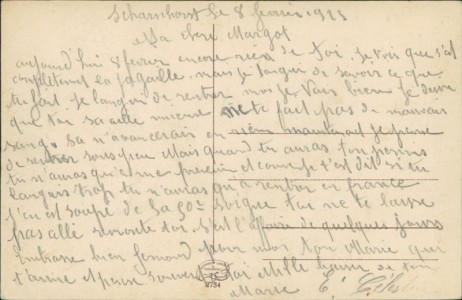 Scharnhorst le 8 février 1923
Ma chere Margot
aujourd'hui 8 fevrier encore rien de toi. Je vois que s'est
completement la pagaille, mais je langui de savoir ce que
tu fait. Je langui de rentrer moi je vais bien je desire
que toi sa aille mieux ne te fait pas de mauvais
sang. Sa n'avancerais en rien maintenant je pense
de rentrer sous peu Mais quand tu auras ton permis
tu n'auras qu'a me prevenir et comme je t'est dit si tu
languis trop tu n'auras qu'a rentrer en france
J'en est soupé de sa 50e soigne toi ne te laisse
pas allé s'est l'affaire de quelques jours
Embrasse bien pour moi ton Marie qui
t'aime et pense souvent a toi Mille baisers de ton
Marie
2734